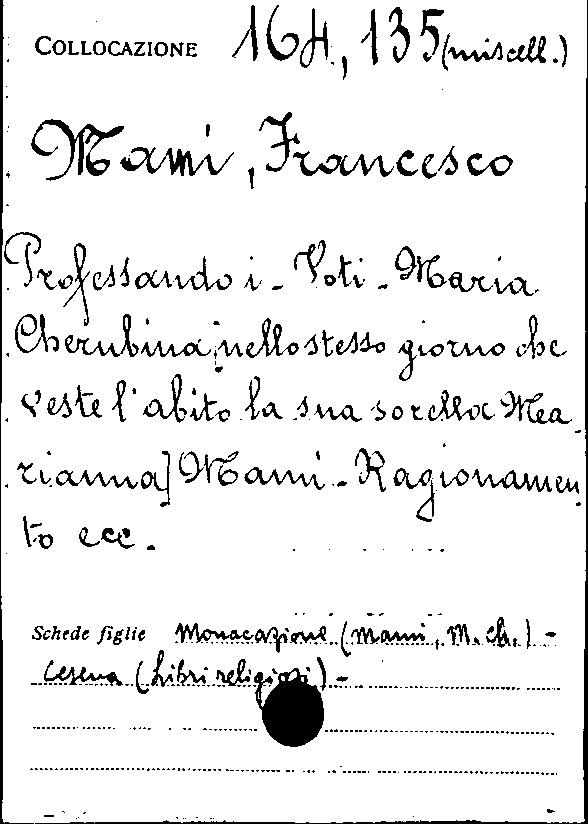 COLLOCAZIONE 164, 135 (miscell.)
Mami, Francesco
Professando i - Voti - Maria
Cherubina [nello stesso giorno che
veste l'abito la sua sorella Ma
rianna] Mami - Ragionamen
to ecc.
Schede figlie Monacazione (Mami, M. Ch.) -
Cesena (Libri religiosi) -